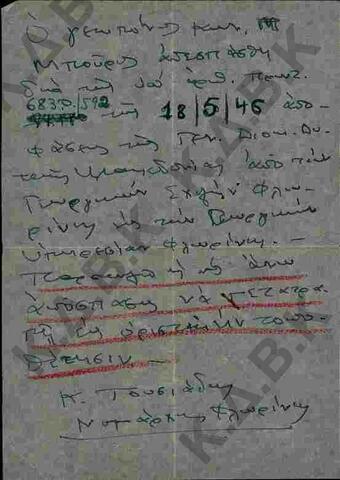 Ὁ γεωπόνος κος
Μπούρος ἀπεσπάσθη
διὰ τῆς ὑπ' ἀριθ. πρωτ.
68320/592
τῆς 18/5/46 ἀπο-
φάσεως τῆς Γεν. Διοικ. Δυ-
τικῆς Μακεδονίας ἀπὸ τὴν
Γεωργικὴν Σχολὴν Φλω-
ρίνης εἰς τὴν Γεωργικὴν
Ὑπηρεσίαν Φλωρίνης. -
Παρακαλῶ ἡ ὡς ἄνω
ἀπόσπασις νὰ μετατρα-
πῇ εἰς ὁριστικὴν τοπο-
θέτησιν -
Κ. Τουσιάδης
Νομάρχης Φλωρίνης